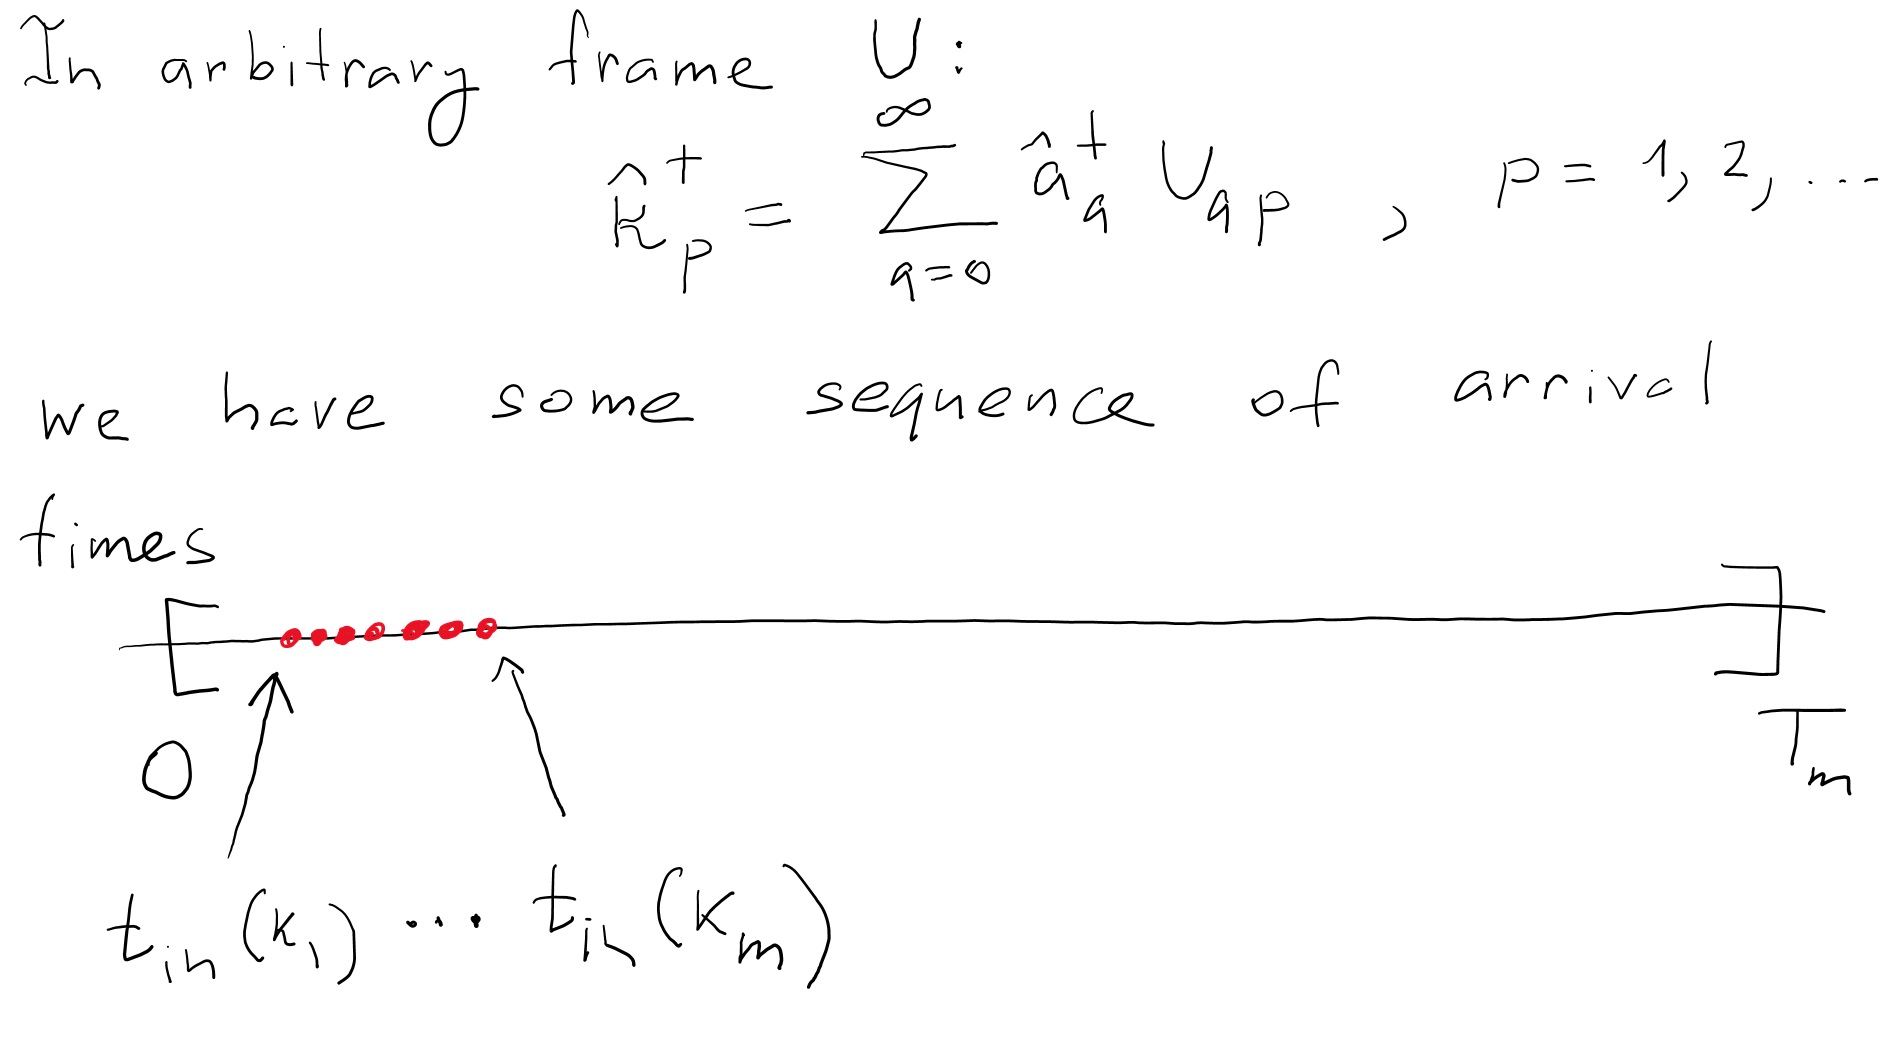 In arbitrary frame U:
κ̂†_p = ∑_{q=0}^{∞} â†_q U_{qp} , p = 1, 2, ...
we have some sequence of arrival
times
[ ]
0 T_m
t_in(κ_1) ... t_in(κ_m)